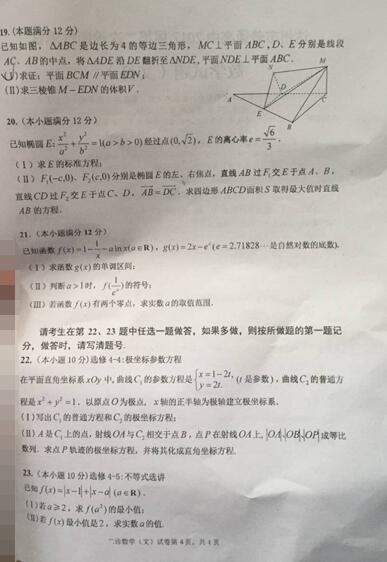 19.(本题满分 12 分)
已知如图，△ABC 是边长为 4 的等边三角形，MC⊥平面 ABC，D、E 分别是线段
AC、AB 的中点，将△ADE 沿 DE 翻折至△NDE，平面 NDE⊥平面 ABC.
(Ⅰ)求证：平面 BCM∥平面 EDN;
(Ⅱ)求三棱锥 M－EDN 的体积 V.
N
M
D
A
C
E
B
20.（本小题满分 12 分）
已知椭圆 E: x²/a² + y²/b² = 1(a > b > 0) 经过点 (0, √2)，E 的离心率 e = √6/3.
(Ⅰ) 求 E 的标准方程;
(Ⅱ) F₁(-c,0)、F₂(c,0) 分别是椭圆 E 的左、右焦点，直线 AB 过 F₁ 交 E 于点 A、B,
直线 CD 过 F₂ 交 E 于点 C、D, AB = DC. 求四边形 ABCD 面积 S 取得最大值时直线
AB 的方程.
21.（本小题满分 12 分）
已知函数 f(x) = 1 - 1/x - a ln x (a∈R), g(x) = 2x - eˣ (e = 2.71828⋯是自然对数的底数).
(Ⅰ) 求函数 g(x) 的单调区间;
(Ⅱ) 判断 a > 1 时, f(1/eᵃ) 的符号;
(Ⅲ) 若函数 f(x) 有两个零点, 求实数 a 的取值范围.
请考生在第 22、23 题中任选一题做答，如果多做，则按所做题的第一题记
分，做答时，请写清题号.
22.（本小题 10 分) 选修 4-4:极坐标参数方程
在平面直角坐标系 xOy 中,曲线 C₁ 的参数方程是 { x = 1-2t, y = 2t. (t 是参数), 曲线 C₂ 的普通方
程是 x² + y² = 1. 以原点 O 为极点, x 轴的正半轴为极轴建立极坐标系.
(Ⅰ) 写出 C₁ 的普通方程和 C₂ 的极坐标方程;
(Ⅱ) A 是 C₁ 上的点, 射线 OA 与 C₂ 相交于点 B, 点 P 在射线 OA 上, |OA|,|OB|,|OP| 成等比
数列. 求点 P 轨迹的极坐标方程, 并将其化成直角坐标方程.
23.（本小题 10 分) 选修 4-5:不等式选讲
已知 f(x) = |x-1| + |x-a| (a∈R).
(Ⅰ) 若 a≥2, 求 f(a²) 的最小值;
(Ⅱ) 若 f(x) 最小值是 2, 求实数 a 的值.
二诊数学（文）试卷第 4 页，共 4 页